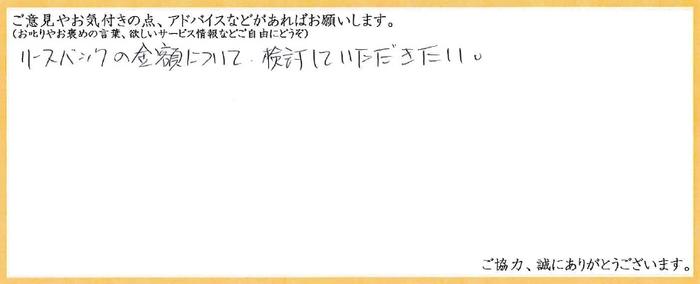 ご意見やお気付きの点、アドバイスなどがあればお願いします。
(お叱りやお褒めの言葉、欲しいサービス情報などご自由にどうぞ)
リースバックの金額について、検討していただきたい。
ご協力、誠にありがとうございます。